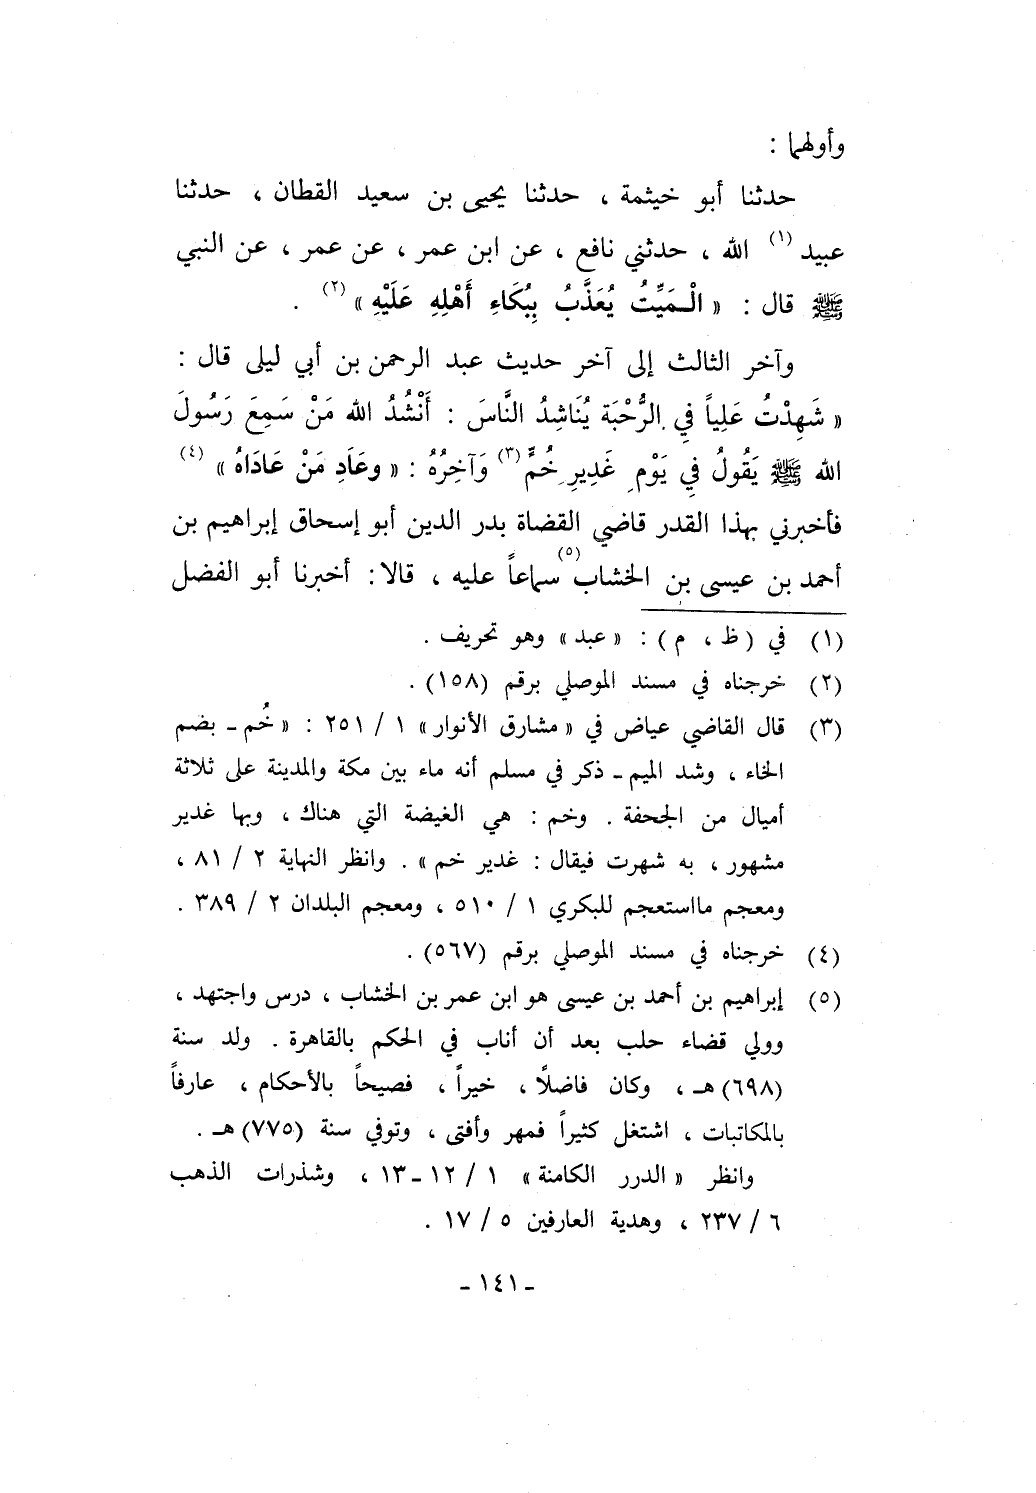 وأولهما :
حدثنا أبو خيثمة ، حدثنا يحيى بن سعيد القطان ، حدثنا
عبيد (١) الله ، حدثني نافع ، عن ابن عمر ، عن عمر ، عن النبي
ﷺ قال : « الْمَيِّتُ يُعَذَّبُ بِبُكَاءِ أَهْلِهِ عَلَيْهِ » (٢) .
وآخر الثالث إلى آخر حديث عبد الرحمن بن أبي ليلى قال :
« شَهِدْتُ عَلِياً فِي الرُّحْبَة يُنَاشِدُ النَّاسَ : أَنْشُدُ الله مَنْ سَمِعَ رَسُولَ
الله ﷺ يَقُولُ فِي يَوْمِ غَدِيرِ خُمٍّ (٣) وَآخِرُهُ : « وعَادِ مَنْ عَادَاهُ » (٤)
فأخبرني بهذا القدر قاضي القضاة بدر الدين أبو إسحاق إبراهيم بن
أحمد بن عيسى بن الخشاب (٥) سماعاً عليه ، قالا : أخبرنا أبو الفضل
(١) في ( ظ ، م ) : « عبد » وهو تحريف .
(٢) خرجناه في مسند الموصلي برقم (١٥٨) .
(٣) قال القاضي عياض في « مشارق الأنوار » ١ / ٢٥١ : « خُم ـ بضم
الخاء ، وشد الميم ـ ذكر في مسلم أنه ماء بين مكة والمدينة على ثلاثة
أميال من الجحفة . وخم : هي الغيضة التي هناك ، وبها غدير
مشهور ، به شهرت فيقال : غدير خم » . وانظر النهاية ٢ / ٨١ ،
ومعجم مااستعجم للبكري ١ / ٥١٠ ، ومعجم البلدان ٢ / ٣٨٩ .
(٤) خرجناه في مسند الموصلي برقم (٥٦٧) .
(٥) إبراهيم بن أحمد بن عيسى هو ابن عمر بن الخشاب ، درس واجتهد ،
وولي قضاء حلب بعد أن أناب في الحكم بالقاهرة . ولد سنة
(٦٩٨) هـ ، وكان فاضلًا ، خيراً ، فصيحاً بالأحكام ، عارفاً
بالمكاتبات ، اشتغل كثيراً فمهر وأفتى ، وتوفي سنة (٧٧٥) هـ .
وانظر « الدرر الكامنة » ١ / ١٢ ـ ١٣ ، وشذرات الذهب
٦ / ٢٣٧ ، وهدية العارفين ٥ / ١٧ .
ـ ١٤١ ـ